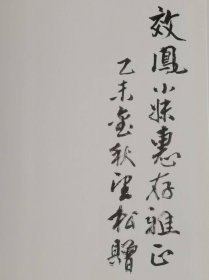 效鳳小妹惠存雅正
乙未金秋望松贈